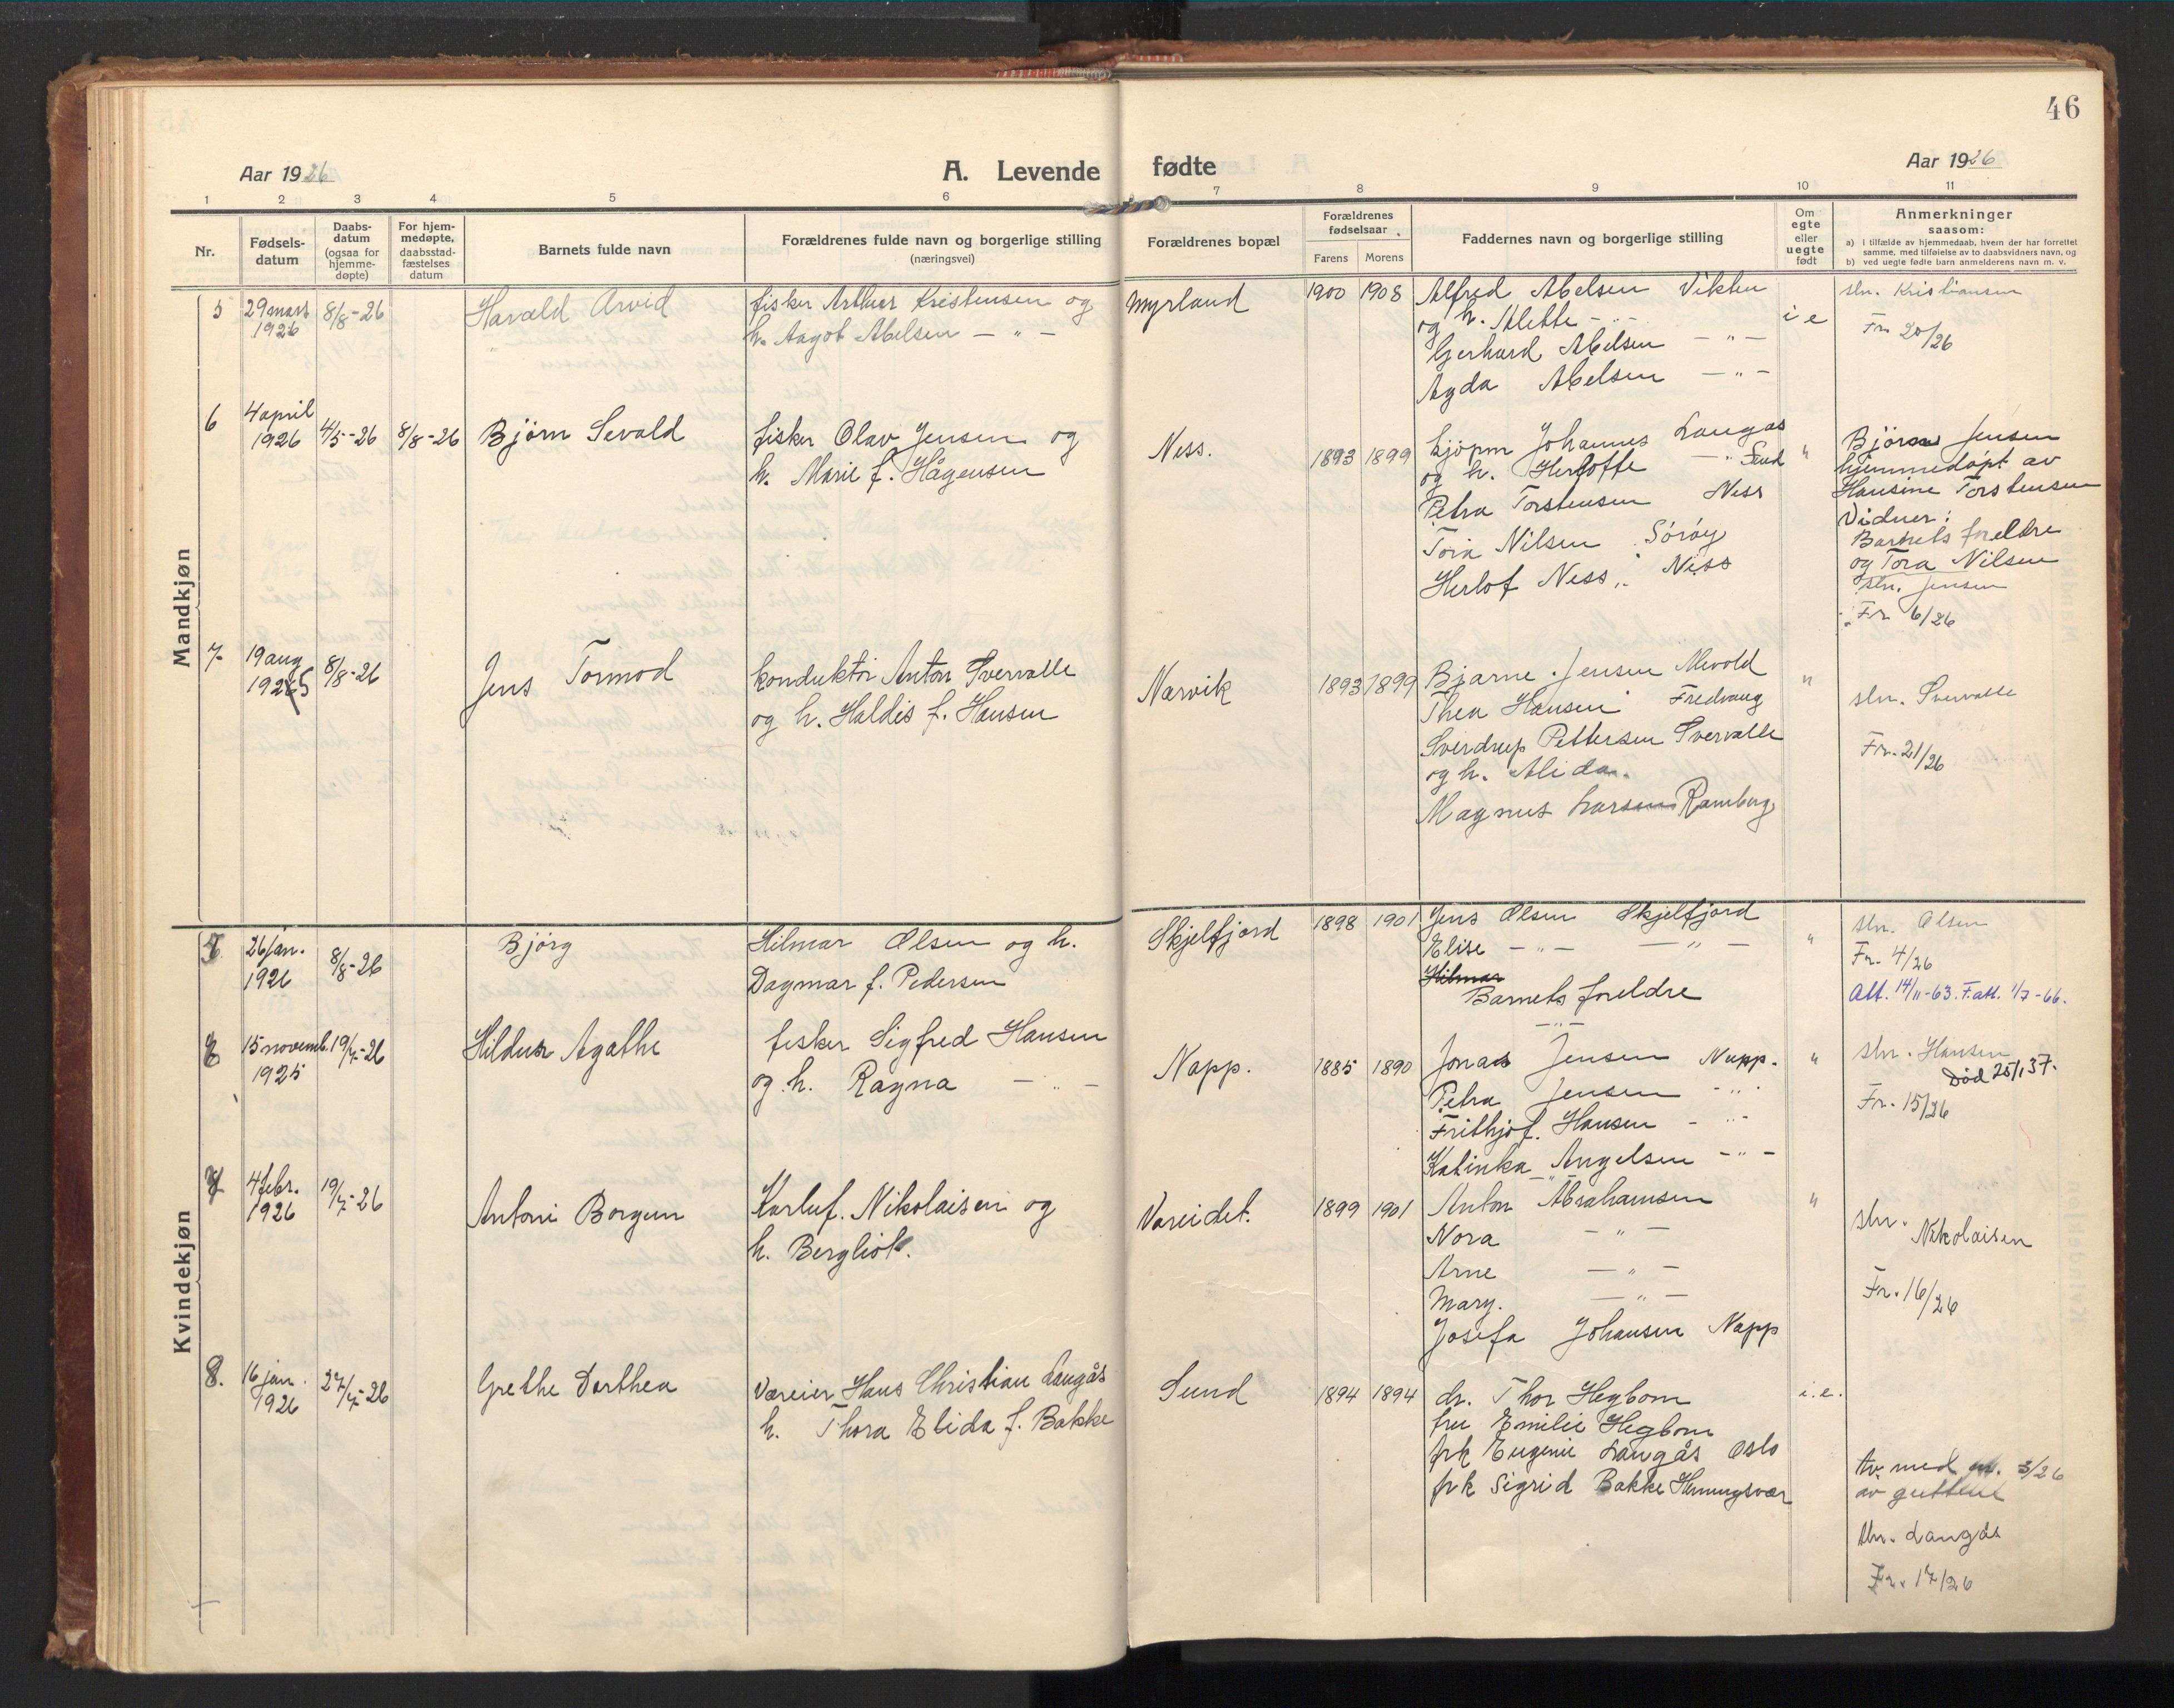 46
Aar 1926
A. Levende fødte
Aar 1926
1 2 3 4 5 6 7 8 9 10 11
Nr.
Fødsels-
datum
Daabs-
datum
(ogsaa for
hjemme-
døpte)
For hjem-
medøpte,
daabsstad-
fæstelses
datum
Barnets fulde navn
Forældrenes fulde navn og borgerlige stilling
(næringsvei)
Forældrenes bopæl
Forældrenes
fødselsaar.
Farens Morens
Faddernes navn og borgerlige stilling
Om
egte
eller
uegte
født
Anmerkninger
saasom:
a) i tilfælde av hjemmedaab, hvem der har forrettet
samme, med tilføielse av to daabsvidners navn, og
b) ved uegte fødte barn anmelderens navn m. v.
Mandkjøn
5
29 mars
1926
8/8-26
Harald Arvid
fisker Arthur Kristensen og
h. Aagot Abelsen — " —
Myrland
1900 1908
Alfred Abelsen Vikten
og h. Alette - " -
Gerhard Abelsen — " —
Agda Abelsen — " —
i e
sln. Kristiansen
Fr. 20/26
6
4 april
1926
4/5-26
8/8-26
Bjørn Sevald
fisker Olav Jensen og
h. Marie f. Hågensen
Ness.
1893 1899
kjøpm Johannes Langås
og h. Herloffe — " Sund
Petra Torstensen Ness
Tora Nilsen Sørøy
Herlof Ness,. Ness
"
Bjørn Jensen
hjemmedøpt av
Hansine Torstensen
Vidner:
Barnets foreldre
og Tora Nilsen
sln. Jensen
Fr 6/26
7
19 aug
1925
8/8-26
Jens Tormod
konduktør Anton Svervalle
og h. Haldis f. Hansen
Narvik
1893 1899
Bjarne Jensen Mevold
Thea Hansen Fredvang
Sverdrup Pettersen Svervalle
og h. Alida.
Magnus Larsen Ramberg
"
sln. Svervalle
Fr. 21/26
Kvindekjøn
26 jan.
1926
8/8-26
Bjørg
Hilmar Olsen og h.
Dagmar f. Pedersen
Skjelfjord
1898 1901
Jens Olsen Skjelfjord
Elise — " — — " —
Hilmar
Barnets foreldre
— " —
"
sln. Olsen
Fr. 4/26
Att. 14/11-63. F.att. 1/7-66.
15 novemb.
1925
19/7-26
Hildur Agathe
fisker Sigfred Hansen
og h. Ragna — " —
Napp.
1885 1890
Jonas Jensen Napp.
Petra Jensen - " -
Frithjof. Hansen - " -
Katinka Angelsen - " -
"
sln. Hansen
Død 25/1 37.
Fr. 15/26
4 febr.
1926
19/7-26
Antoni Borgun
Karluf. Nikolaisen og
h. Bergliot.
Vareidet.
1899 1901
Anton Abrahamsen
Nora — " —
Arne — " —
Mary. — " —
Josefa Johansen Napp
"
sln.
Nikolaisen
Fr. 16/26
8.
16 jan.
1926
27/7-26
Grethe Dorthea
Væreier Hans Christian Langås
h. Thora Elida f. Bakke
Sund
1894 1894
dr. Thor Hegbom
fru Emilie Hegbom
frk Eugenie Langås Oslo
frk Sigrid Bakke Henningsvær
i. e.
tv. med nr. 3/26
av guttene
sln. Langås
Fr. 17/26